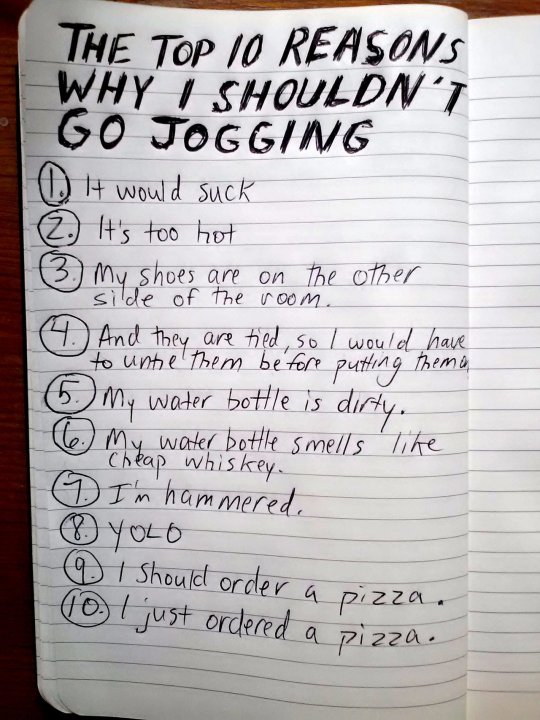 THE TOP 10 REASONS
WHY I SHOULDN'T
GO JOGGING
1. It would suck
2. It's too hot
3. My shoes are on the other
side of the room.
4. And they are tied, so I would have
to untie them before putting them on
5. My water bottle is dirty.
6. My water bottle smells like
cheap whiskey.
7. I'm hammered.
8. YOLO
9. I should order a pizza.
10. I just ordered a pizza.